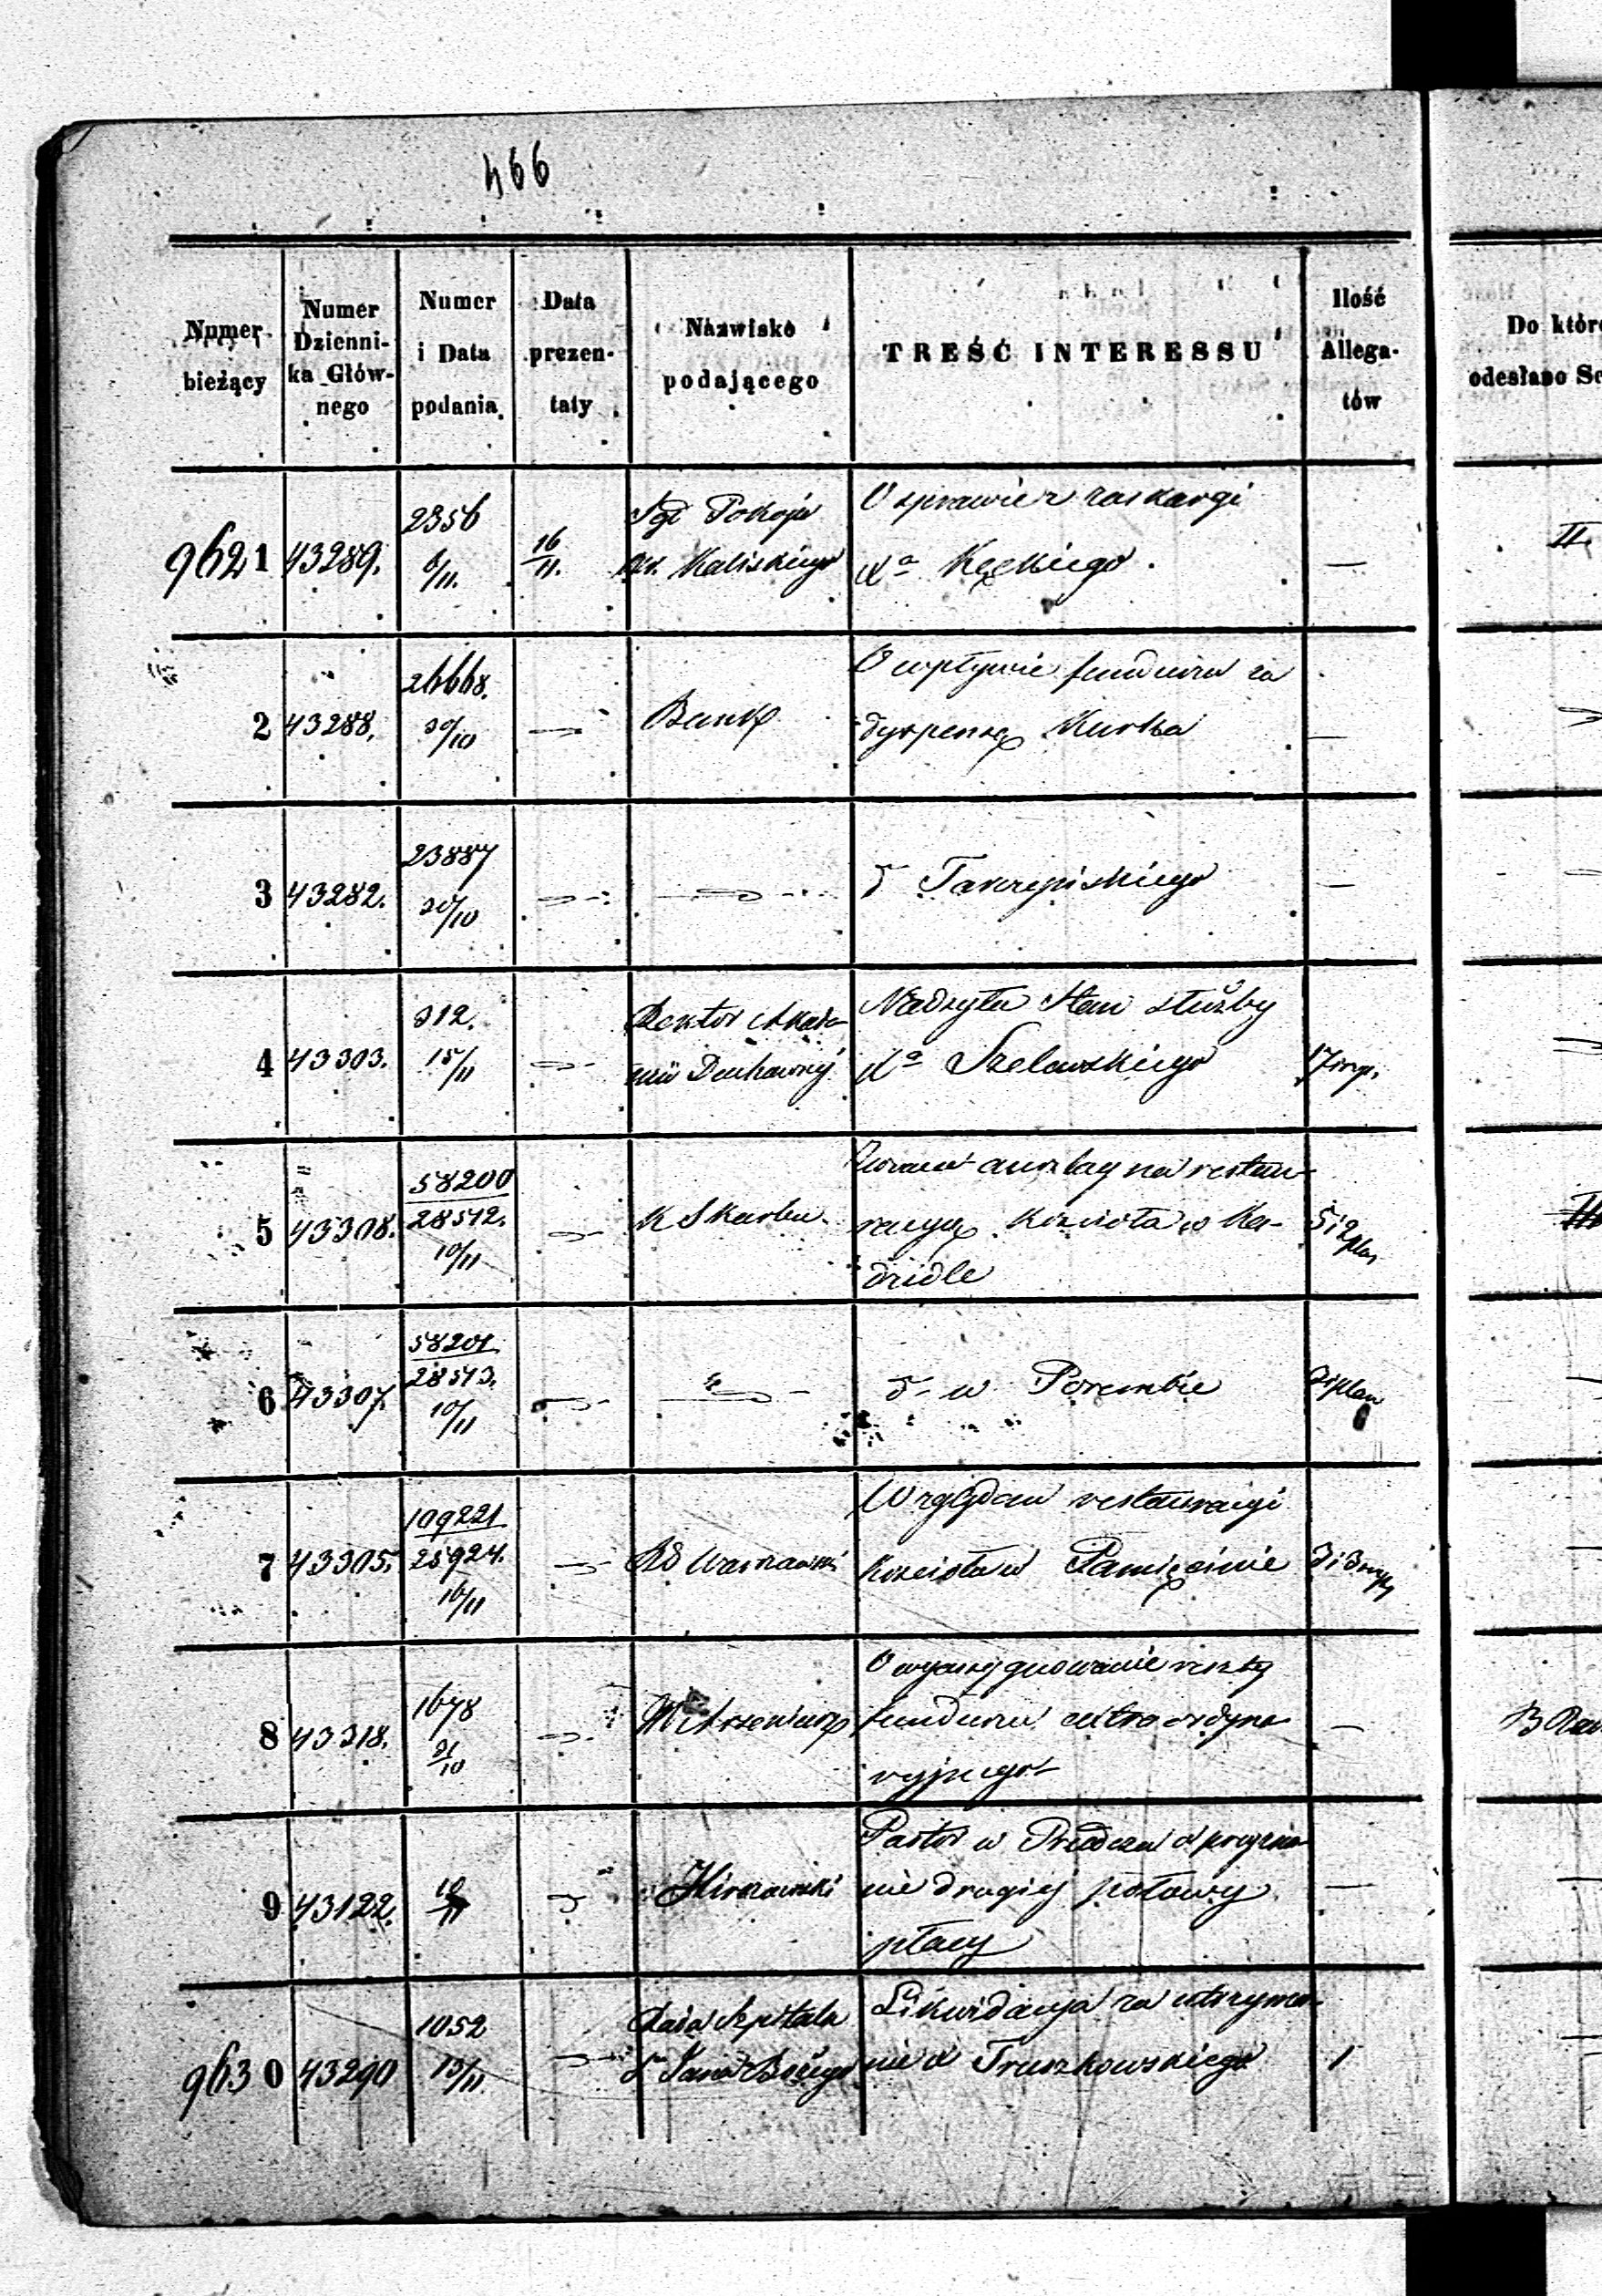 466
Numer bieżący
Numer Dzienni-ka Głów-nego
Numer i Data podania
Data prezen-taty
Nazwisko podającego
TREŚĆ INTERESSU
Ilość Allega-tów
Do które
odesłano Se
9621 43289. 2356 6/11. 16/11. Sąd Pokoju Okr. Kaliskiego O sprawie z zaskargi Xa Kęckiego — II.
2 43288. 26668. 30/10 — Bank O wpływie funduszu za dyspensę Kurka —
3 43282. 23887 30/10 — — d Tarczyńskiego —
4 43303. 312. 15/11 — Rektor Akade-mii Duchownej Nadsyła Stan służby Xa Szelewskiego
5 43308. 58200 28512. 10/11 — K Skarbu anszlag na restau-racyą Kościoła w Ka-dzidle 5 i 2 plan
6 43307. 58201. 28513. 10/11 — — d- w Porembie plan
7 43305. 109221. 25924. 16/11 — RG Warszawski Względem restauracyi Kościoła w Pamięcinie
8 43318. 1678 31/10 — O wyassygnowanie reszty funduszu extraordyna-ryjnego — B
9 43122. 10/11 — Pastor w Przedczu o przyzna-nie drugiej połowy płacy —
9630 43290 1052 13/11 — Rada Szpitala S. Jana Bożego Likwidacya za utrzyma-nie X Truszkowskiego 1